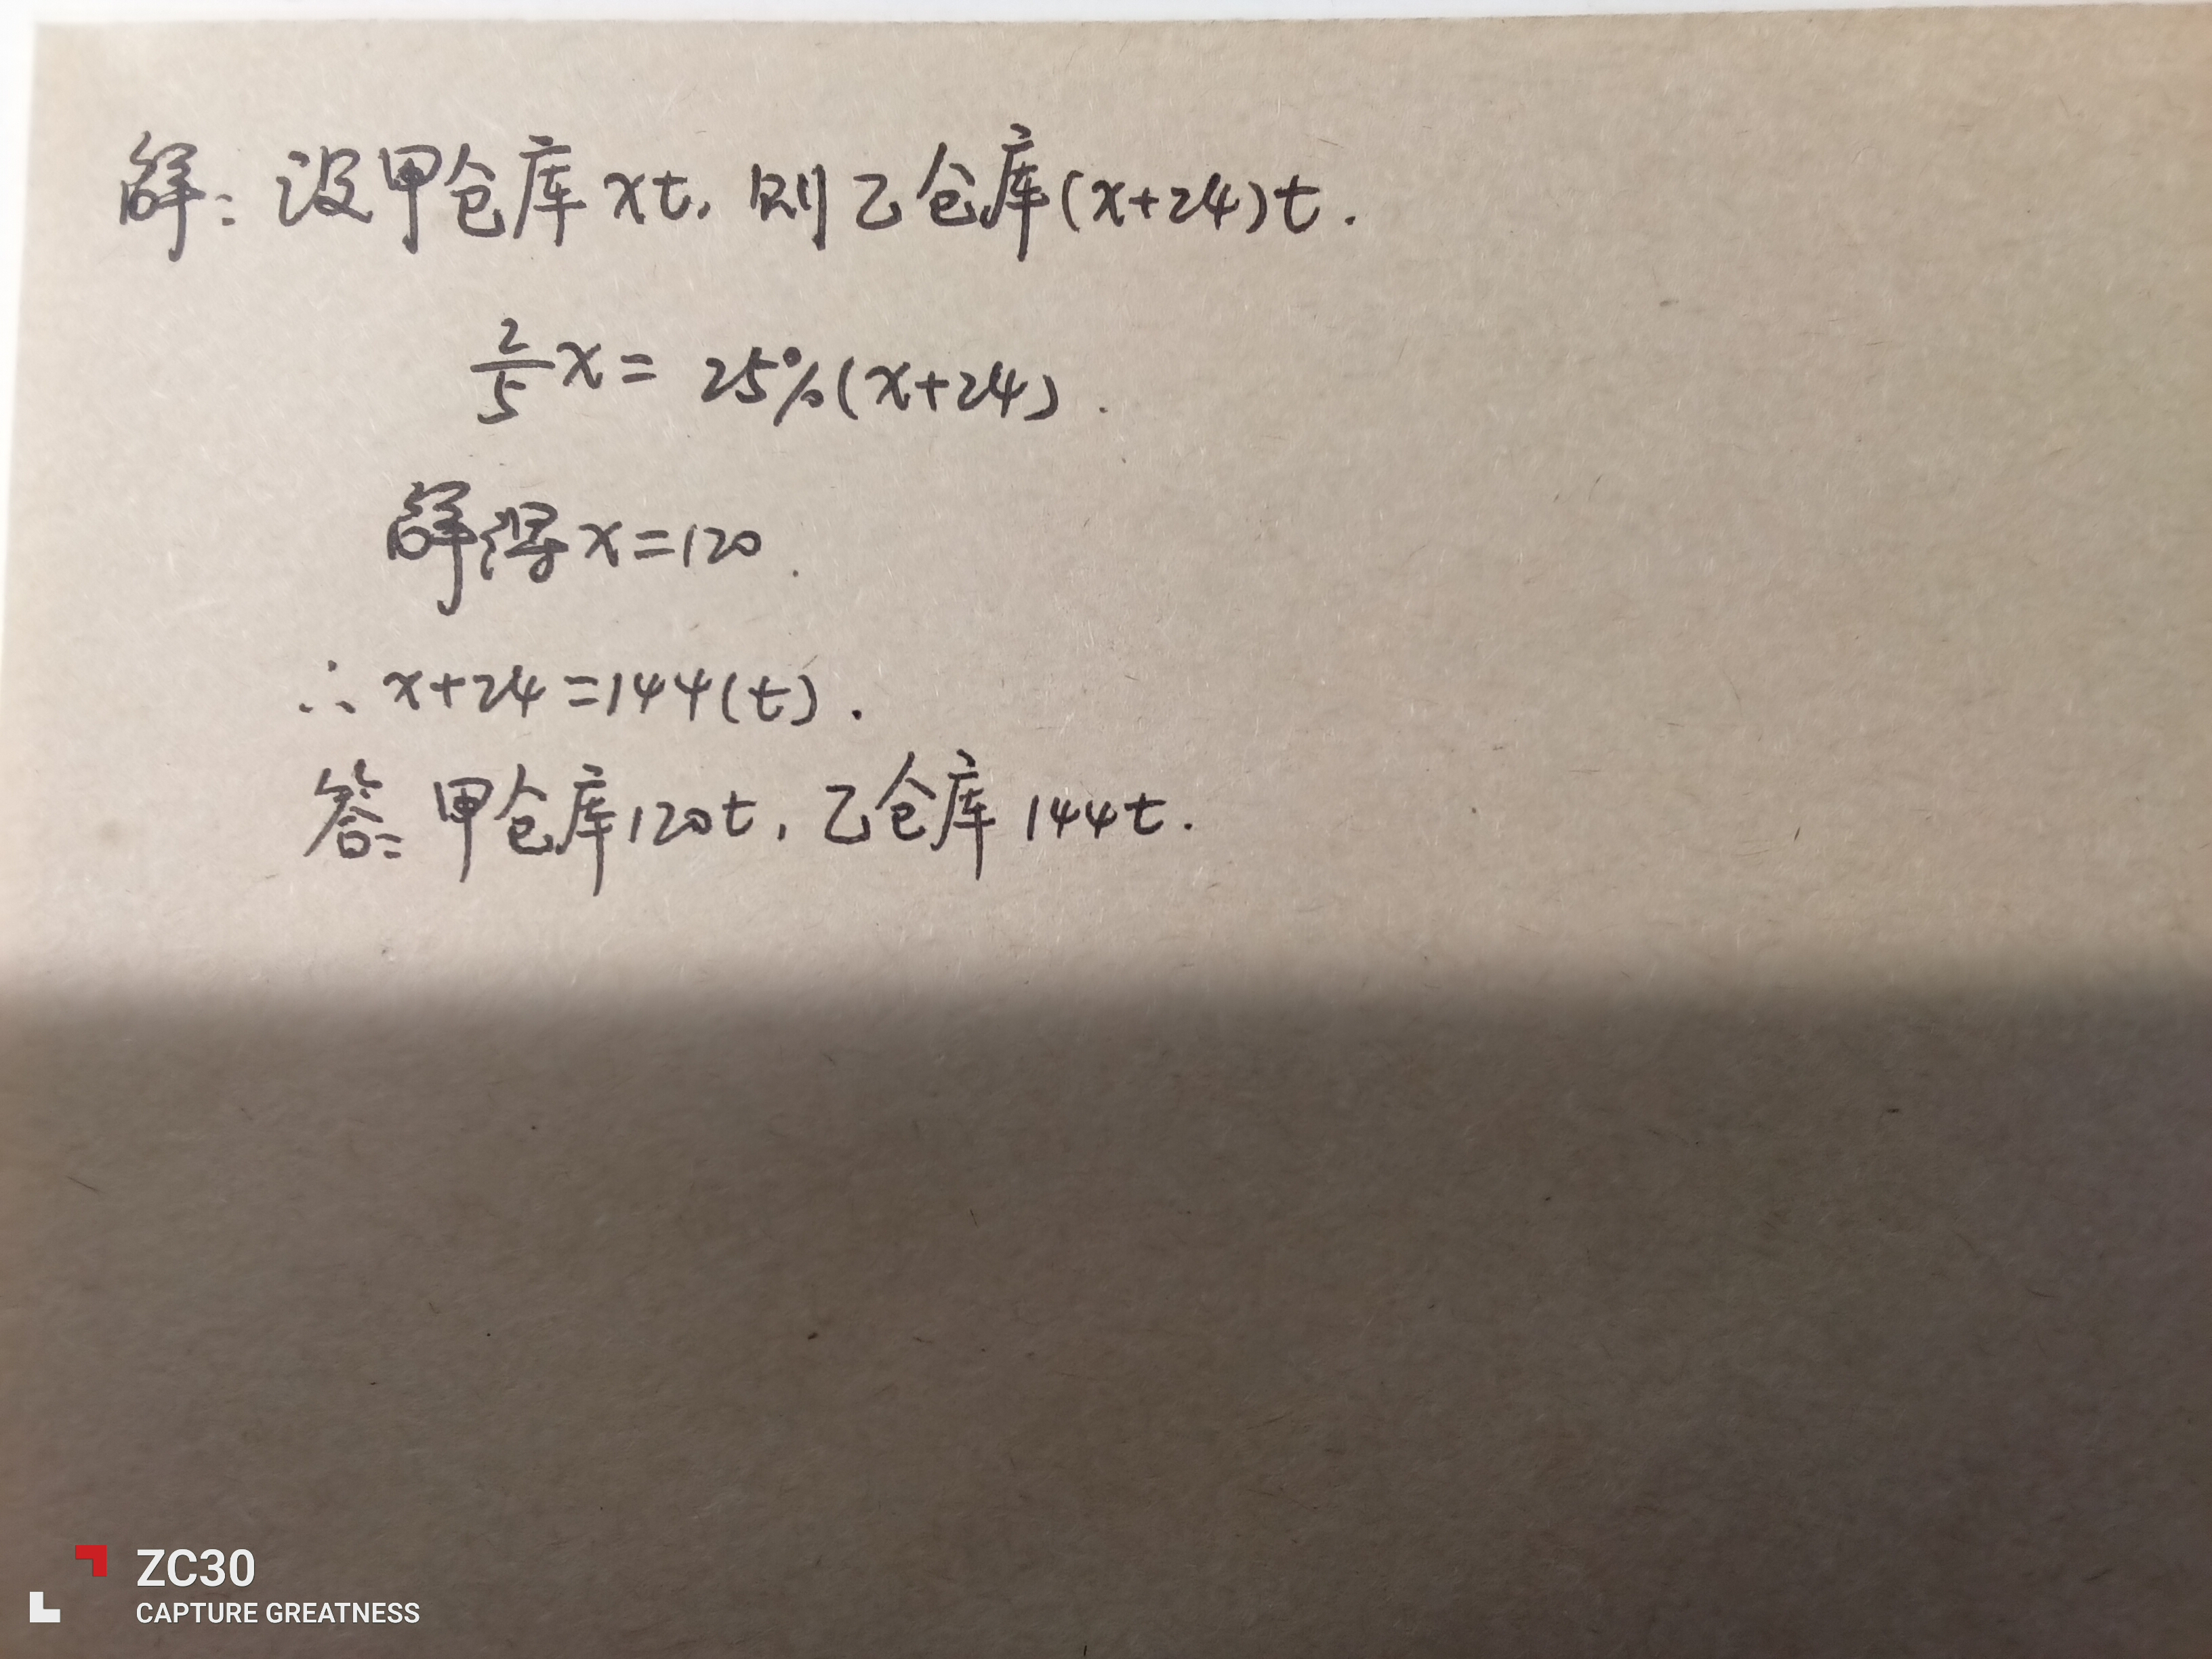 解：设甲仓库xt，则乙仓库(x+24)t.
2/5x=25%(x+24).
解得x=120.
∴x+24=144(t).
答：甲仓库120t，乙仓库144t.
ZC30
CAPTURE GREATNESS